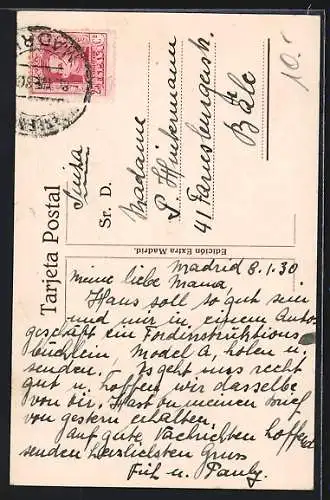 Tarjeta Postal
Suiza
Sr. D.
Madame
P. Hunkermann
41
Bâle
Edición Extra Madrid.
10.-
MADR
Madrid 8.1.30
Meine liebe Mama,
Hans soll so gut sein
und mir in einem Autos
geschäft ein Fordinstruktions
büchlein, Model A, holen u.
senden. Es geht uns recht
gut u. hoffen wir dasselbe
von Dir. Hast Du meinen Brief
von gestern erhalten.
Auf gute Nachrichten hoffend
senden herzlichsten Gruss
u.